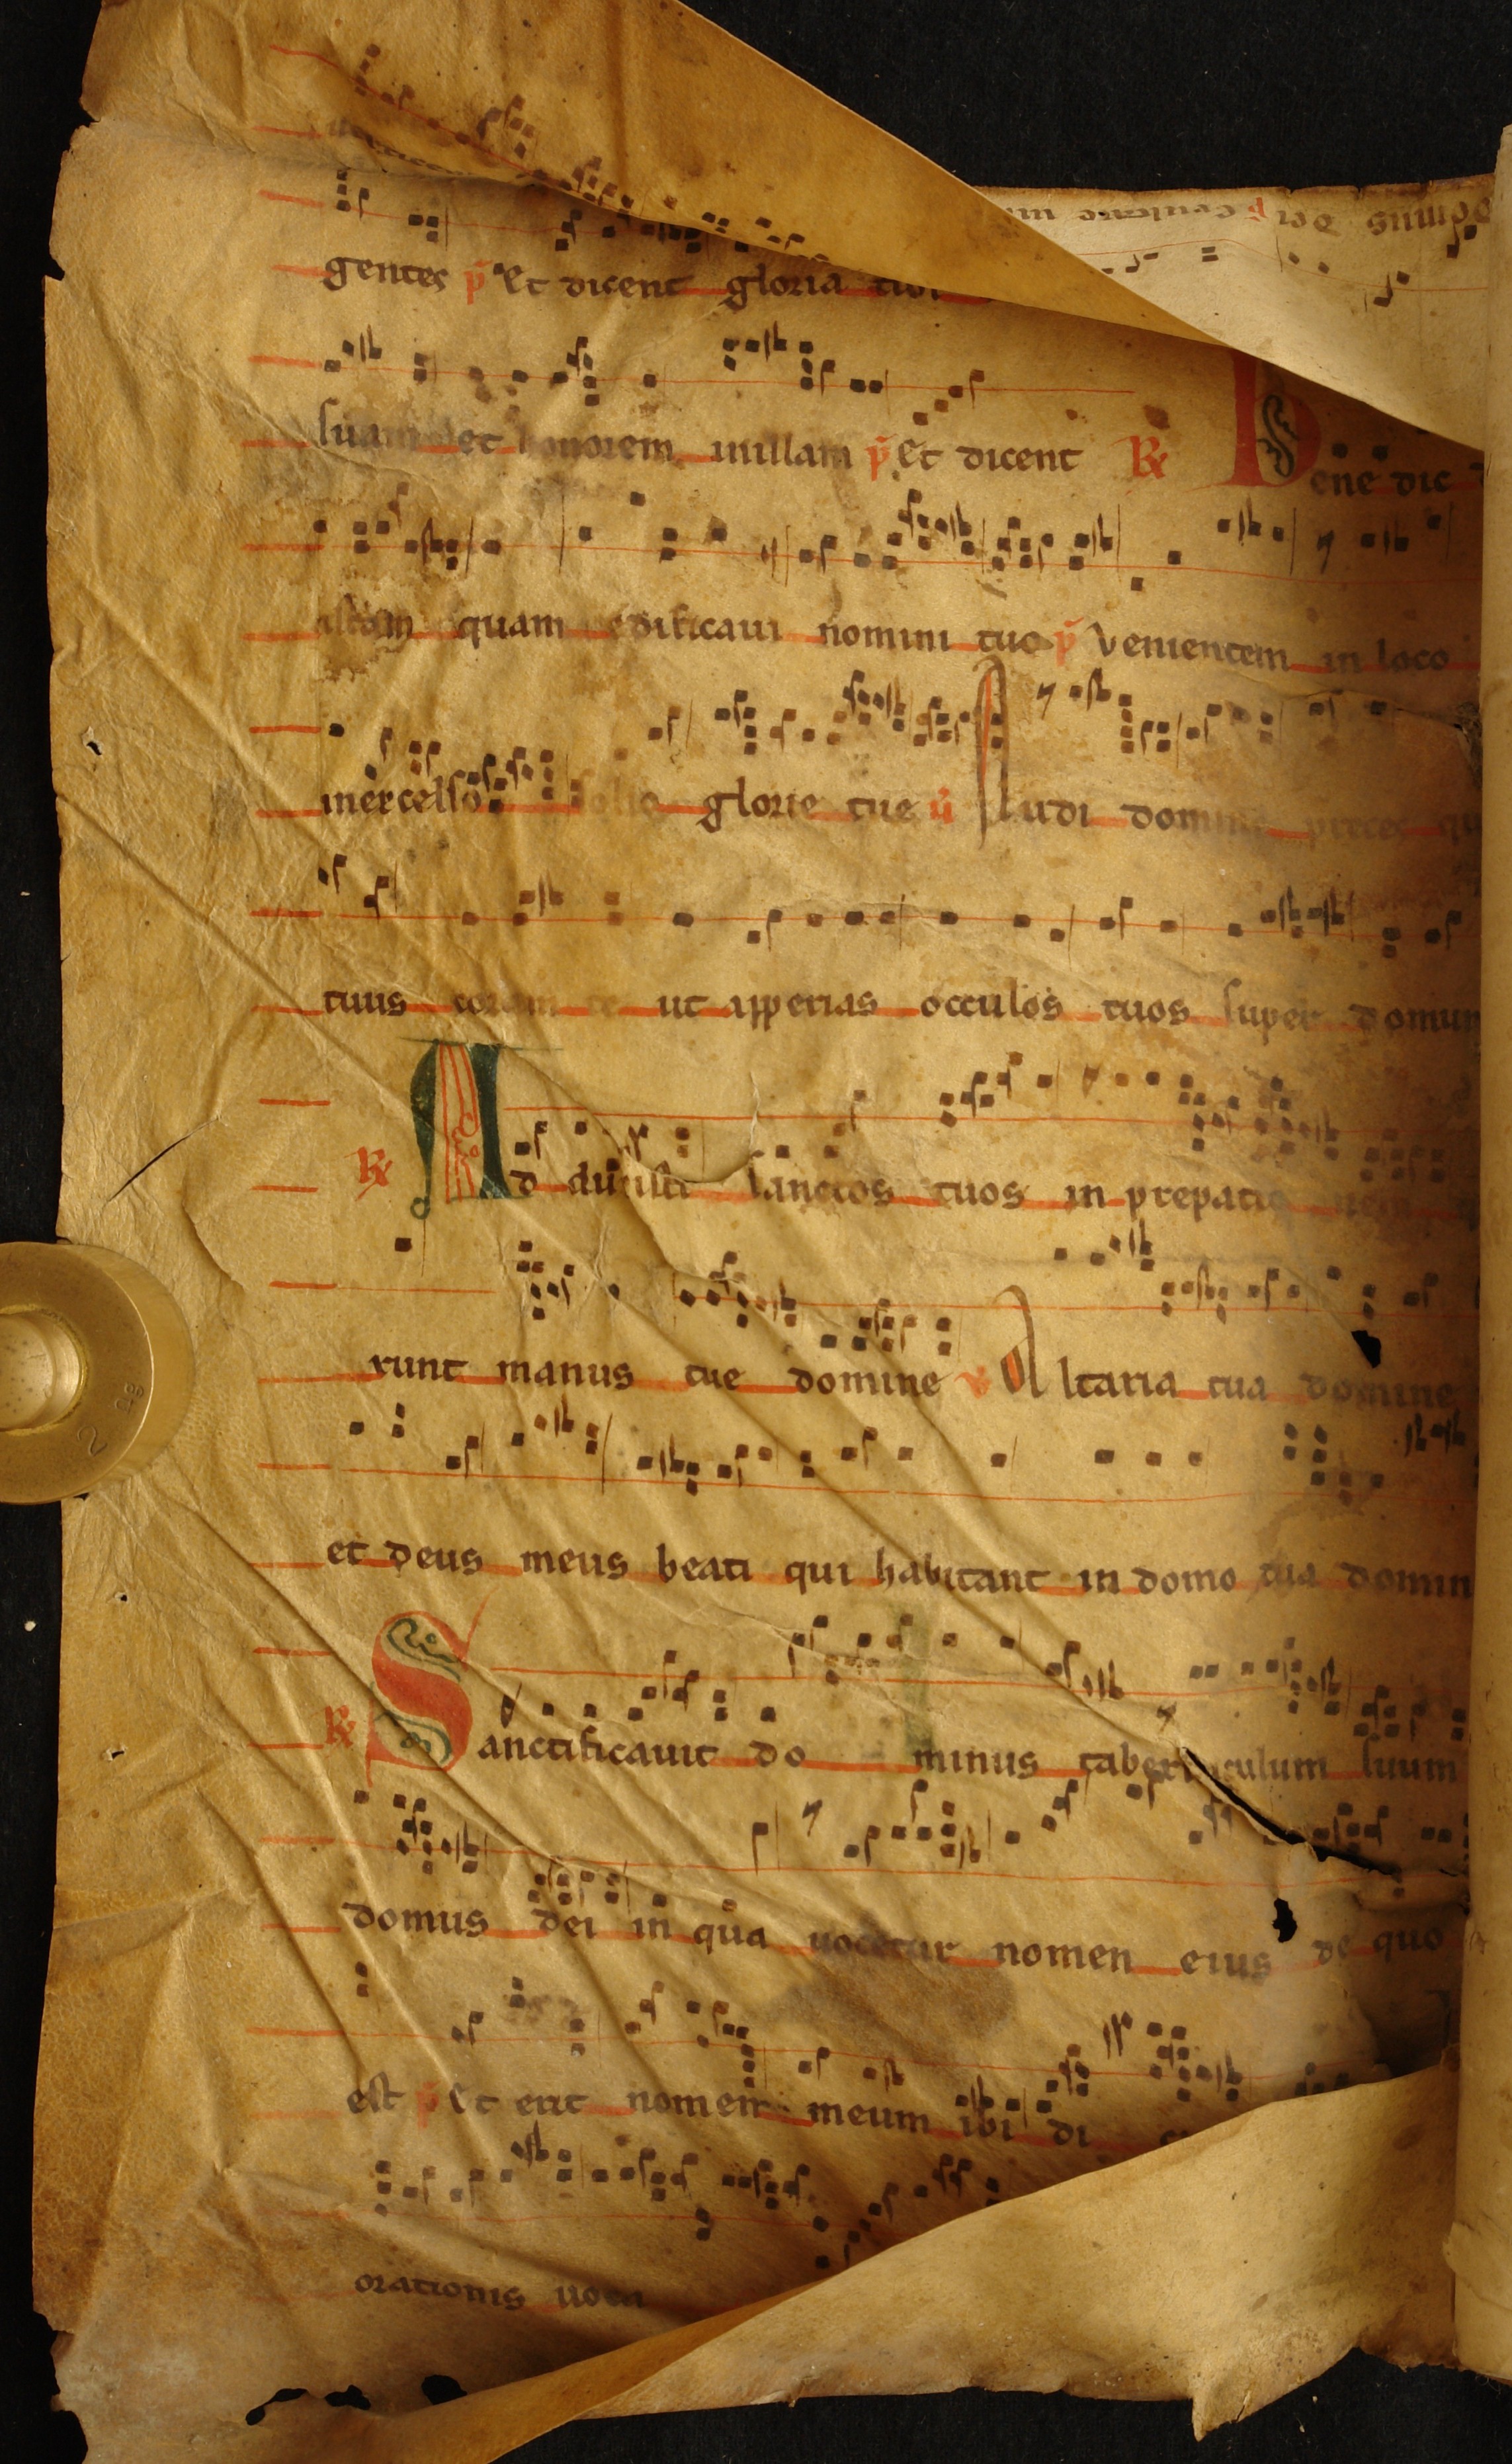 gentes p̄ Et dicent gloria
suam et honorem. nullam p̄ Et dicent ℟ Bene dic
istam quam edificaui nomini tuo p̄ Venientem in loco
inexcelso solio glorie tue ℣ Audi domine preces
tuus coram te ut apperias occulos tuos super domum
℟ Adduxisti sanctos tuos in prepatio
runt manus tue domine ℣ Altaria tua domine
et deus meus beati qui habitant in domo tua domin
℟ Sanctificauit dominus tabernaculum suum
domus dei in qua uocetur nomen eius de quo
est p̄ Et erit nomen meum ibi di
orationis uoca